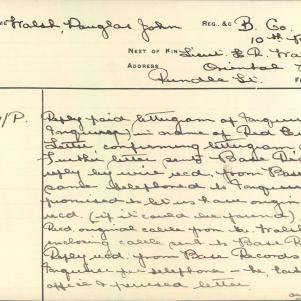 Walsh, Douglas John REG. &C B. Co.
10th
NEXT OF KIN Lieut. E. R.
ADDRESS Oriental
Rundle St.
/P. Reply paid lettergram of
in name of Red
Letter confirming lettergram
Further letter sent Base
reply by wire recd. from Base
same telephoned to
promised to let us have
recd. (if it could be found)
Recd. original cable from Mr. Walsh
enclosing cable sent to Base
Reply recd. from Base Records
telephone - he
office & perused letter.